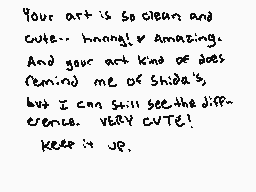 Your art is so clean and
cute.. hnnng! ♥ Amazing.
And your art kind of does
remind me of Shida's,
but I can still see the diff-
erence. VERY CUTE!
keep it up.